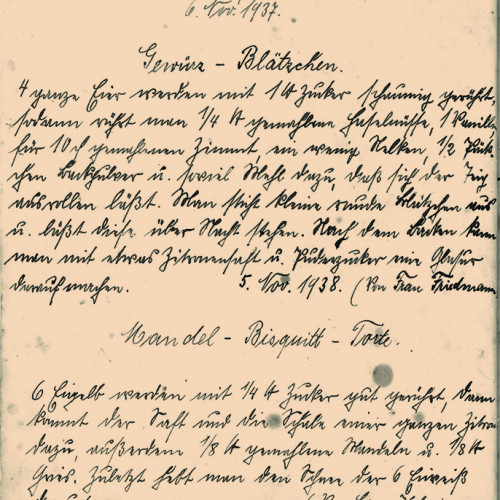 6. Nov. 1937.
Gewürz - Blätzchen.
4 ganze Eier werden mit 1 ℔ Zucker schaumig gerührt
sodann rührt man 1/4 ℔ gemahlene Haselnüsse, 1 Vanille
für 10 ₰ gemahlenen Zimmt, ein wenig Nelken, 1/2 Päck-
chen Backpulver u. soviel Mehl dazu, daß sich der Teig
ausrollen läßt. Man sticht kleine runde Blätzchen aus
u. läßt diese über Nacht stehen. Nach dem Backen kann
man mit etwas Zitronensaft u. Puderzucker eine Glasur
darauf machen. 5. Nov. 1938. (Von Frau Friedmann
Mandel - Bisquitt - Torte.
6 Eigelb werden mit 1/4 ℔ Zucker gut gerührt, dann
kommt der Saft und die Schale einer ganzen Zitron
dazu, außerdem 1/8 ℔ gemahlene Mandeln u. 1/8 ℔
Gries. Zuletzt hebt man den Schnee der 6 Eiweiß